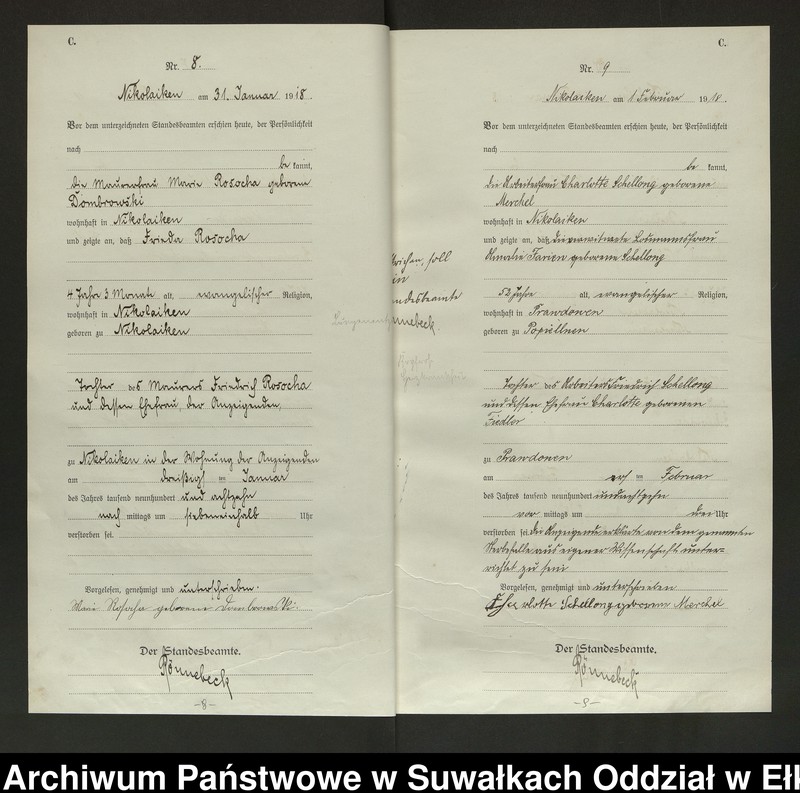 C.
Nr. 8.
Nikolaiken am 31. Januar 1918.
Vor dem unterzeichneten Standesbeamten erschien heute, der Persönlichkeit
nach
be kannt,
die Maurerfrau Marie Rosocha geborene
Dombrowski
wohnhaft in Nikolaiken
und zeigte an, daß Frieda Rosocha
4 Jahre 3 Monate alt, evangelischer Religion,
wohnhaft in Nikolaiken
geboren zu Nikolaiken
Tochter des Maurers Friedrich Rosocha
und dessen Ehefrau, der Anzeigenden,
zu Nikolaiken in der Wohnung der Anzeigenden
am dreißigst en Januar
des Jahres tausend neunhundert und achtzehn
nach mittags um siebeneinhalb Uhr
verstorben sei.
Vorgelesen, genehmigt und unterschrieben.
Mari Rosocha geborene Dombrowski
Der Standesbeamte.
Rönnebeck
-8-
soll
in
ndesbeamte
nnebeck.
C.
Nr. 9
Nikolaiken am 1 Februar 1918.
Vor dem unterzeichneten Standesbeamten erschien heute, der Persönlichkeit
nach
be kannt,
die Arbeiterfrau Charlotte Schellong geborene
Merchel
wohnhaft in Nikolaiken
und zeigte an, daß die verwitwete Losmannsfrau
Amalie geborene Schellong
52 Jahre alt, evangelischer Religion,
wohnhaft in Prawdowen
geboren zu Popiellnen
Tochter des Arbeiters Friedrich Schellong
und dessen Ehefrau Charlotte geborenen
Fiedler
zu Prawdowen
am erst en Februar
des Jahres tausend neunhundert und achtzehn
vor mittags um drei Uhr
verstorben sei. Die Anzeigende erklärte von dem genannten
Sterbefalle aus eigener Wissenschaft unter-
richtet zu sein
Vorgelesen, genehmigt und unterschrieben
Charlotte Schellong geboren Merchel
Der Standesbeamte.
Rönnebeck
-9-
Archiwum Państwowe w Suwałkach Oddział w Ełk